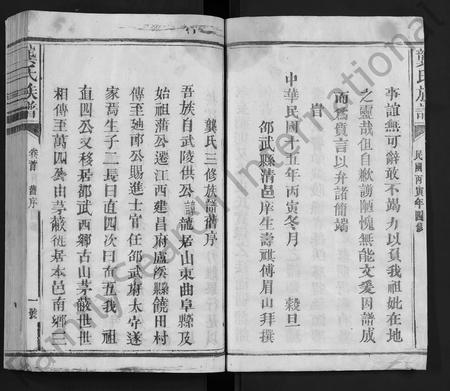 龔氏族譜
民國丙寅年四修
事誼無可辭敢不竭力以負我祖妣在地
之靈哉但自歉謭陋愧無能文爰因譜成
而為贅言以弁諸簡端
旹
中華民國 五年丙寅冬月 穀旦
邵武縣清邑庠生壽祺傅眉山拜撰
龔氏三修族譜舊序
吾族自武陵供公 龍居山東曲阜縣及
始祖蒲公遷江西建昌府盧溪縣饒田村
傳至廸甫公賜進士官任邵武府太守遂
家焉生子二長曰直四次曰 五我 祖
直四公又移居邵武西鄉古山茅蔽世世
相傳至萬四公由茅蔽徙居本邑南鄉二
龔氏族譜
卷首 舊序
一號
FamilySearch International